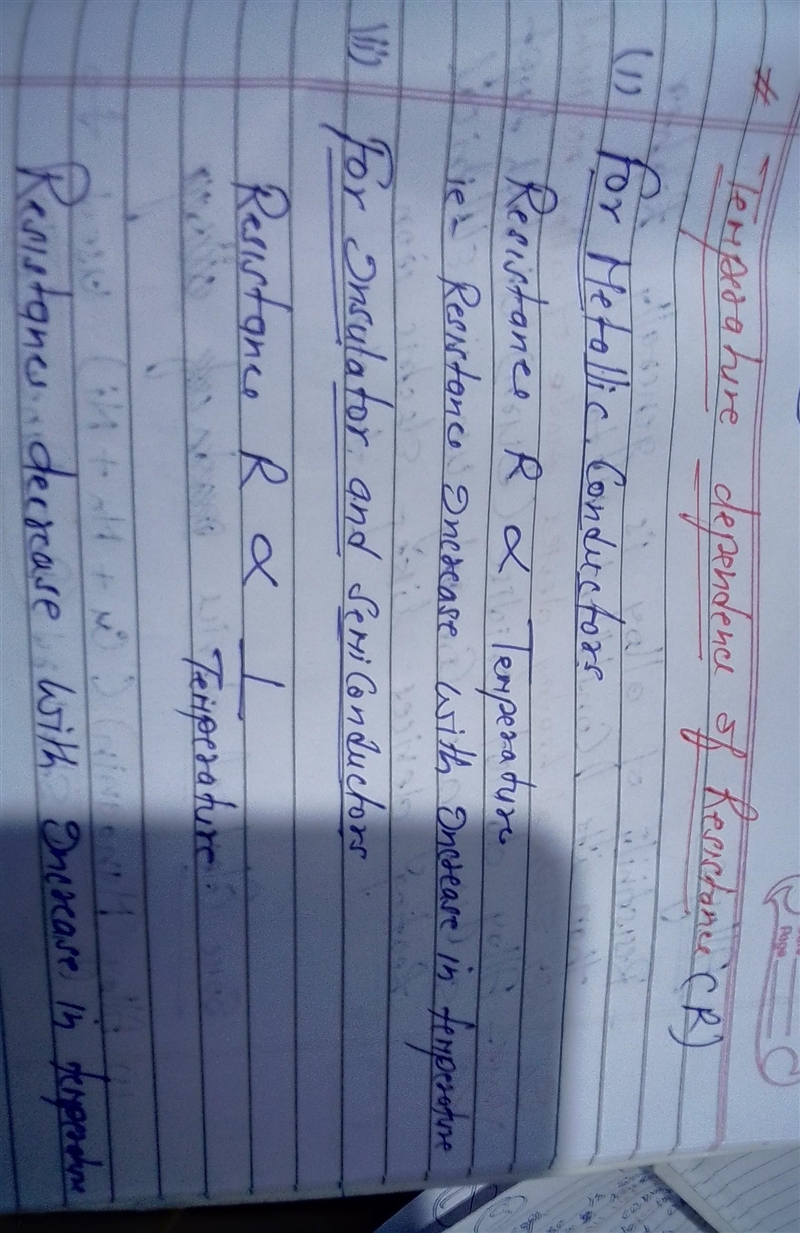 # Temperature dependence of Resistance (R)
(i) For Metallic Conductors
Resistance R ∝ Temperature
ie- Resistance Increase with Increase in temperature
(ii) For Insulator and SemiConductors
Resistance R ∝ 1
Temperature
Resistance decrease with Increase in temperature
Page